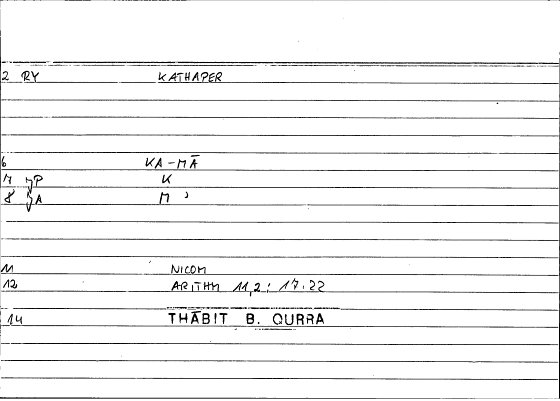 2 RY KATHAPER
6 KA-MĀ
7 γP K
8 γA M ʾ
11 NICOM
12 ARITHM 11,2: 17.22
14 THĀBIT B. QURRA